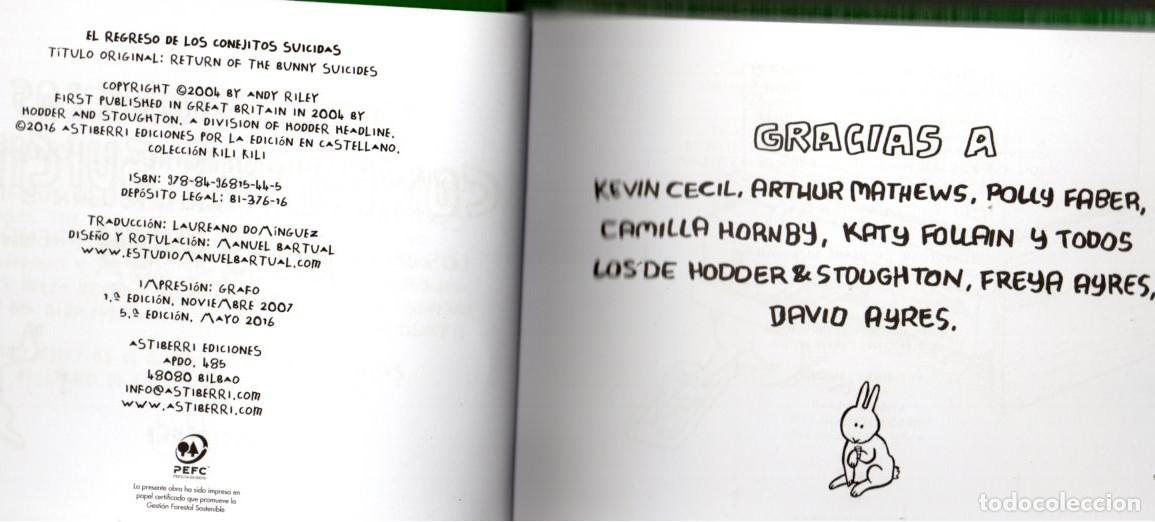 EL REGRESO DE LOS CONEJITOS SUICIDAS
TÍTULO ORIGINAL: RETURN OF THE BUNNY SUICIDES
COPYRIGHT ©2004 BY ANDY RILEY
FIRST PUBLISHED IN GREAT BRITAIN IN 2004 BY
HODDER AND STOUGHTON, A DIVISION OF HODDER HEADLINE.
©2016 ASTIBERRI EDICIONES POR LA EDICIÓN EN CASTELLANO.
COLECCIÓN KILI KILI
ISBN: 978-84-96815-44-5
DEPÓSITO LEGAL: BI-376-16
TRADUCCIÓN: LAUREANO DOMÍNGUEZ
DISEÑO Y ROTULACIÓN: MANUEL BARTUAL
WWW.ESTUDIOMANUELBARTUAL.COM
IMPRESIÓN: GRAFO
1.ª EDICIÓN, NOVIEMBRE 2007
5.ª EDICIÓN, MAYO 2016
ASTIBERRI EDICIONES
APDO. 485
48080 BILBAO
INFO@ASTIBERRI.COM
WWW.ASTIBERRI.COM
PEFC
La presente obra ha sido impresa en
papel certificado que promueve la
Gestión Forestal Sostenible
GRACIAS A
KEVIN CECIL, ARTHUR MATHEWS, POLLY FABER,
CAMILLA HORNBY, KATY FOLLAIN Y TODOS
LOS DE HODDER & STOUGHTON, FREYA AYRES,
DAVID AYRES.
todocoleccion